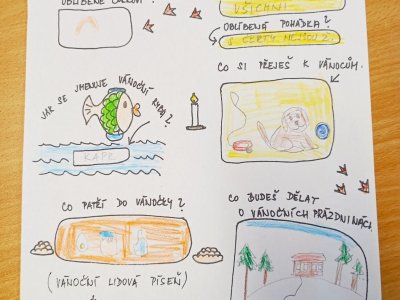 OBLÍBENÉ CUKROVÍ?
VŠICHNI
OBLÍBENÁ POHÁDKA?
S ČERTY NEJSOU Ž.
JAK SE JMENUJE VÁNOČNÍ RYBA?
KAPR
CO SI PŘEJEŠ K VÁNOCŮM?
CO PATŘÍ DO VÁNOČKY?
(VÁNOČNÍ LIDOVÁ PÍSEŇ)
CO BUDEŠ DĚLAT
O VÁNOČNÍCH PRÁZDNINÁCH